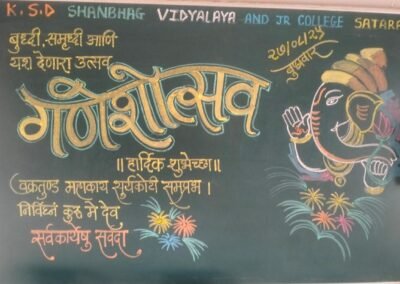 K.S.D SHANBHAG VIDYALAYA AND JR COLLEGE SATARA
बुध्दी, समृध्दी आणि
यश देणारा उत्सव
२७/०८/२५
बुधवार
गणेशोत्सव
॥ हार्दिक शुभेच्छा ॥
वक्रतुण्ड महाकाय सूर्यकोटी समप्रभ ।
निर्विघ्नं कुरू मे देव
सर्वकार्येषु सर्वदा